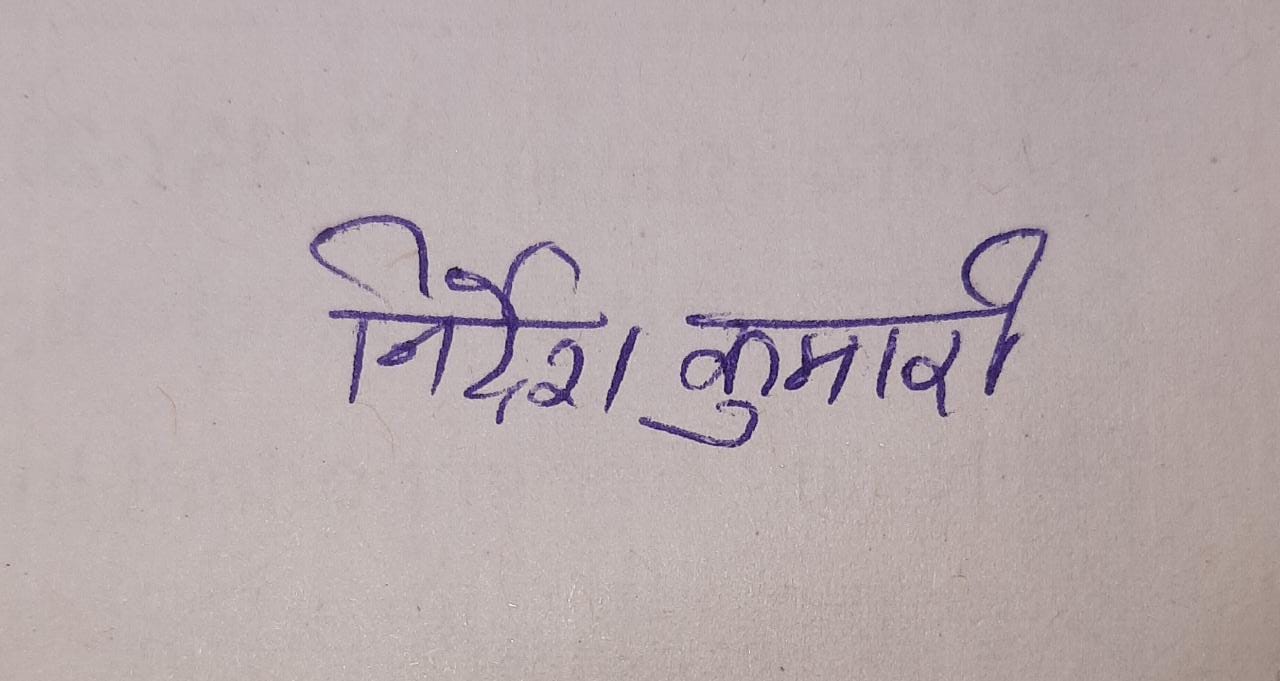 निर्देश कुमारी